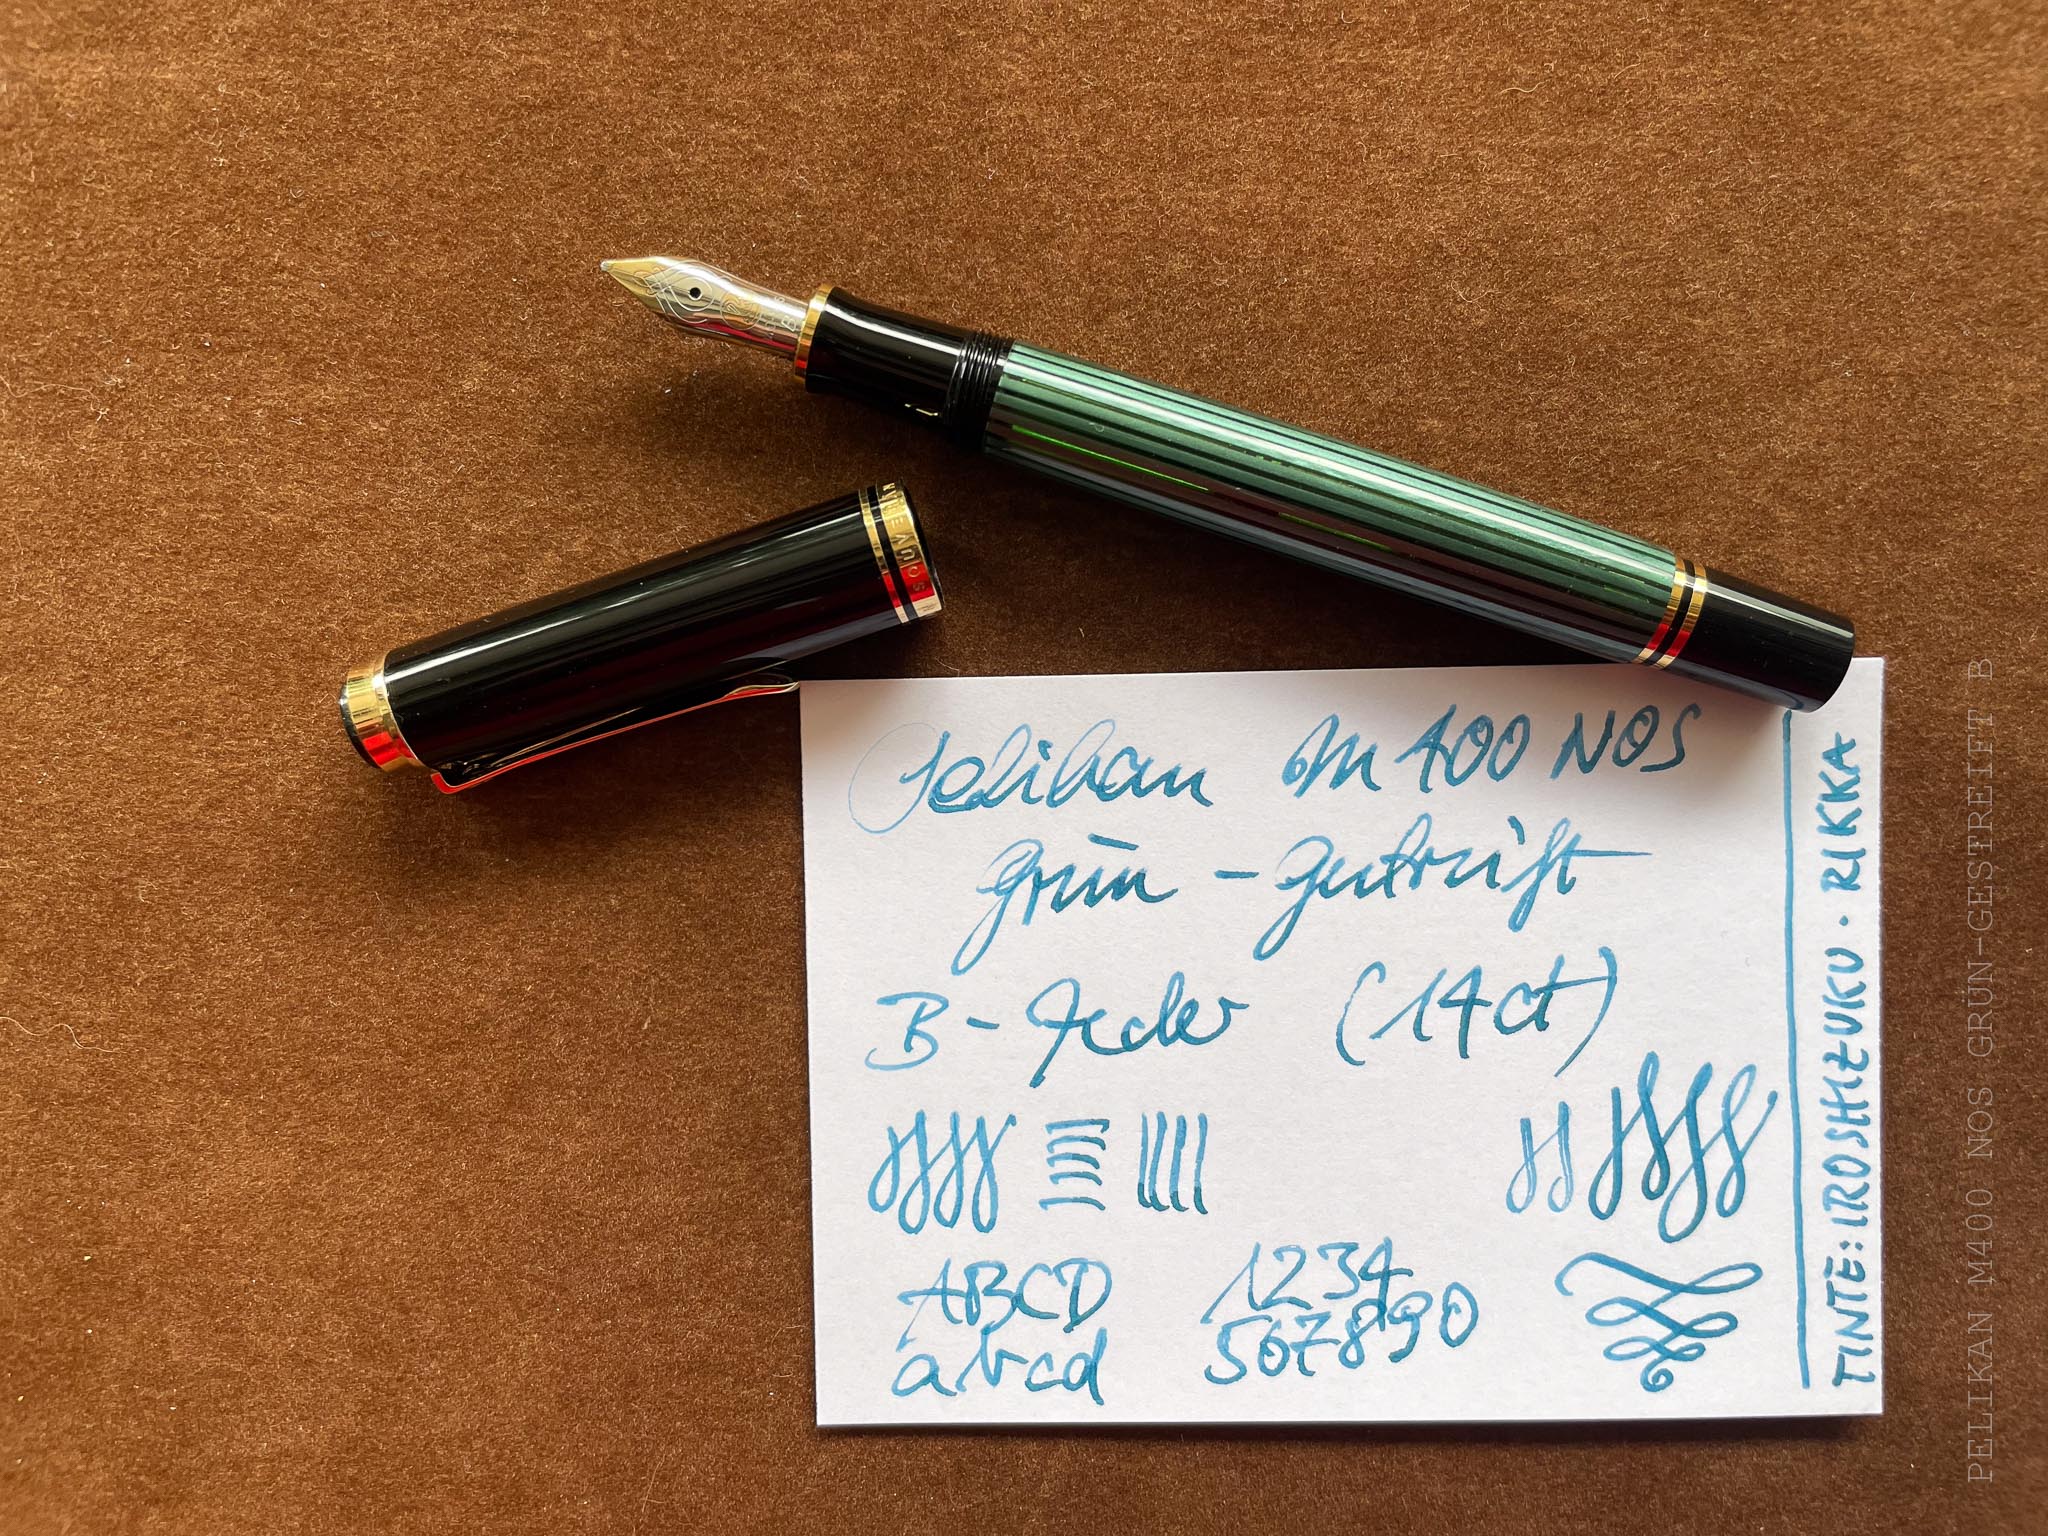 SOUVERÄN
Pelikan M400 NOS
Grün-gestreift
B-Feder (14ct)
ABCD
abcd
1234
567890
TINTE: IROSHIZUKU · RIKKA
PELIKAN M400 NOS GRÜN-GESTREIFT B